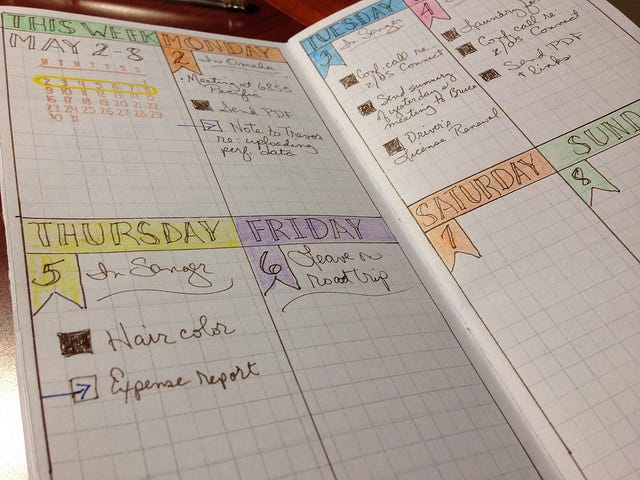 THIS WEEK
MAY 2-8
M T W T F S S
2 3 4 5 6 7 8
9 10 11 12 13 14 15
16 17 18 19 20 21 22
23 24 25 26 27 28 29
30 31
MONDAY
2
In Omaha
• Meeting at 6855
Pacific
Send PDF
Note to Trevor
re: uploading
perf data
TUESDAY
3
In Sanger
Conf. call re.
Connect
Send summary
of yesterday's
meeting to Bruce
Driver's
License Renewal
4
Laundry
Conf call re.
Connect
Send PDF
+ links
THURSDAY
5
In Sanger
Hair color
Expense report
FRIDAY
6
Leave on
road trip
SATURDAY
7
SUND
8